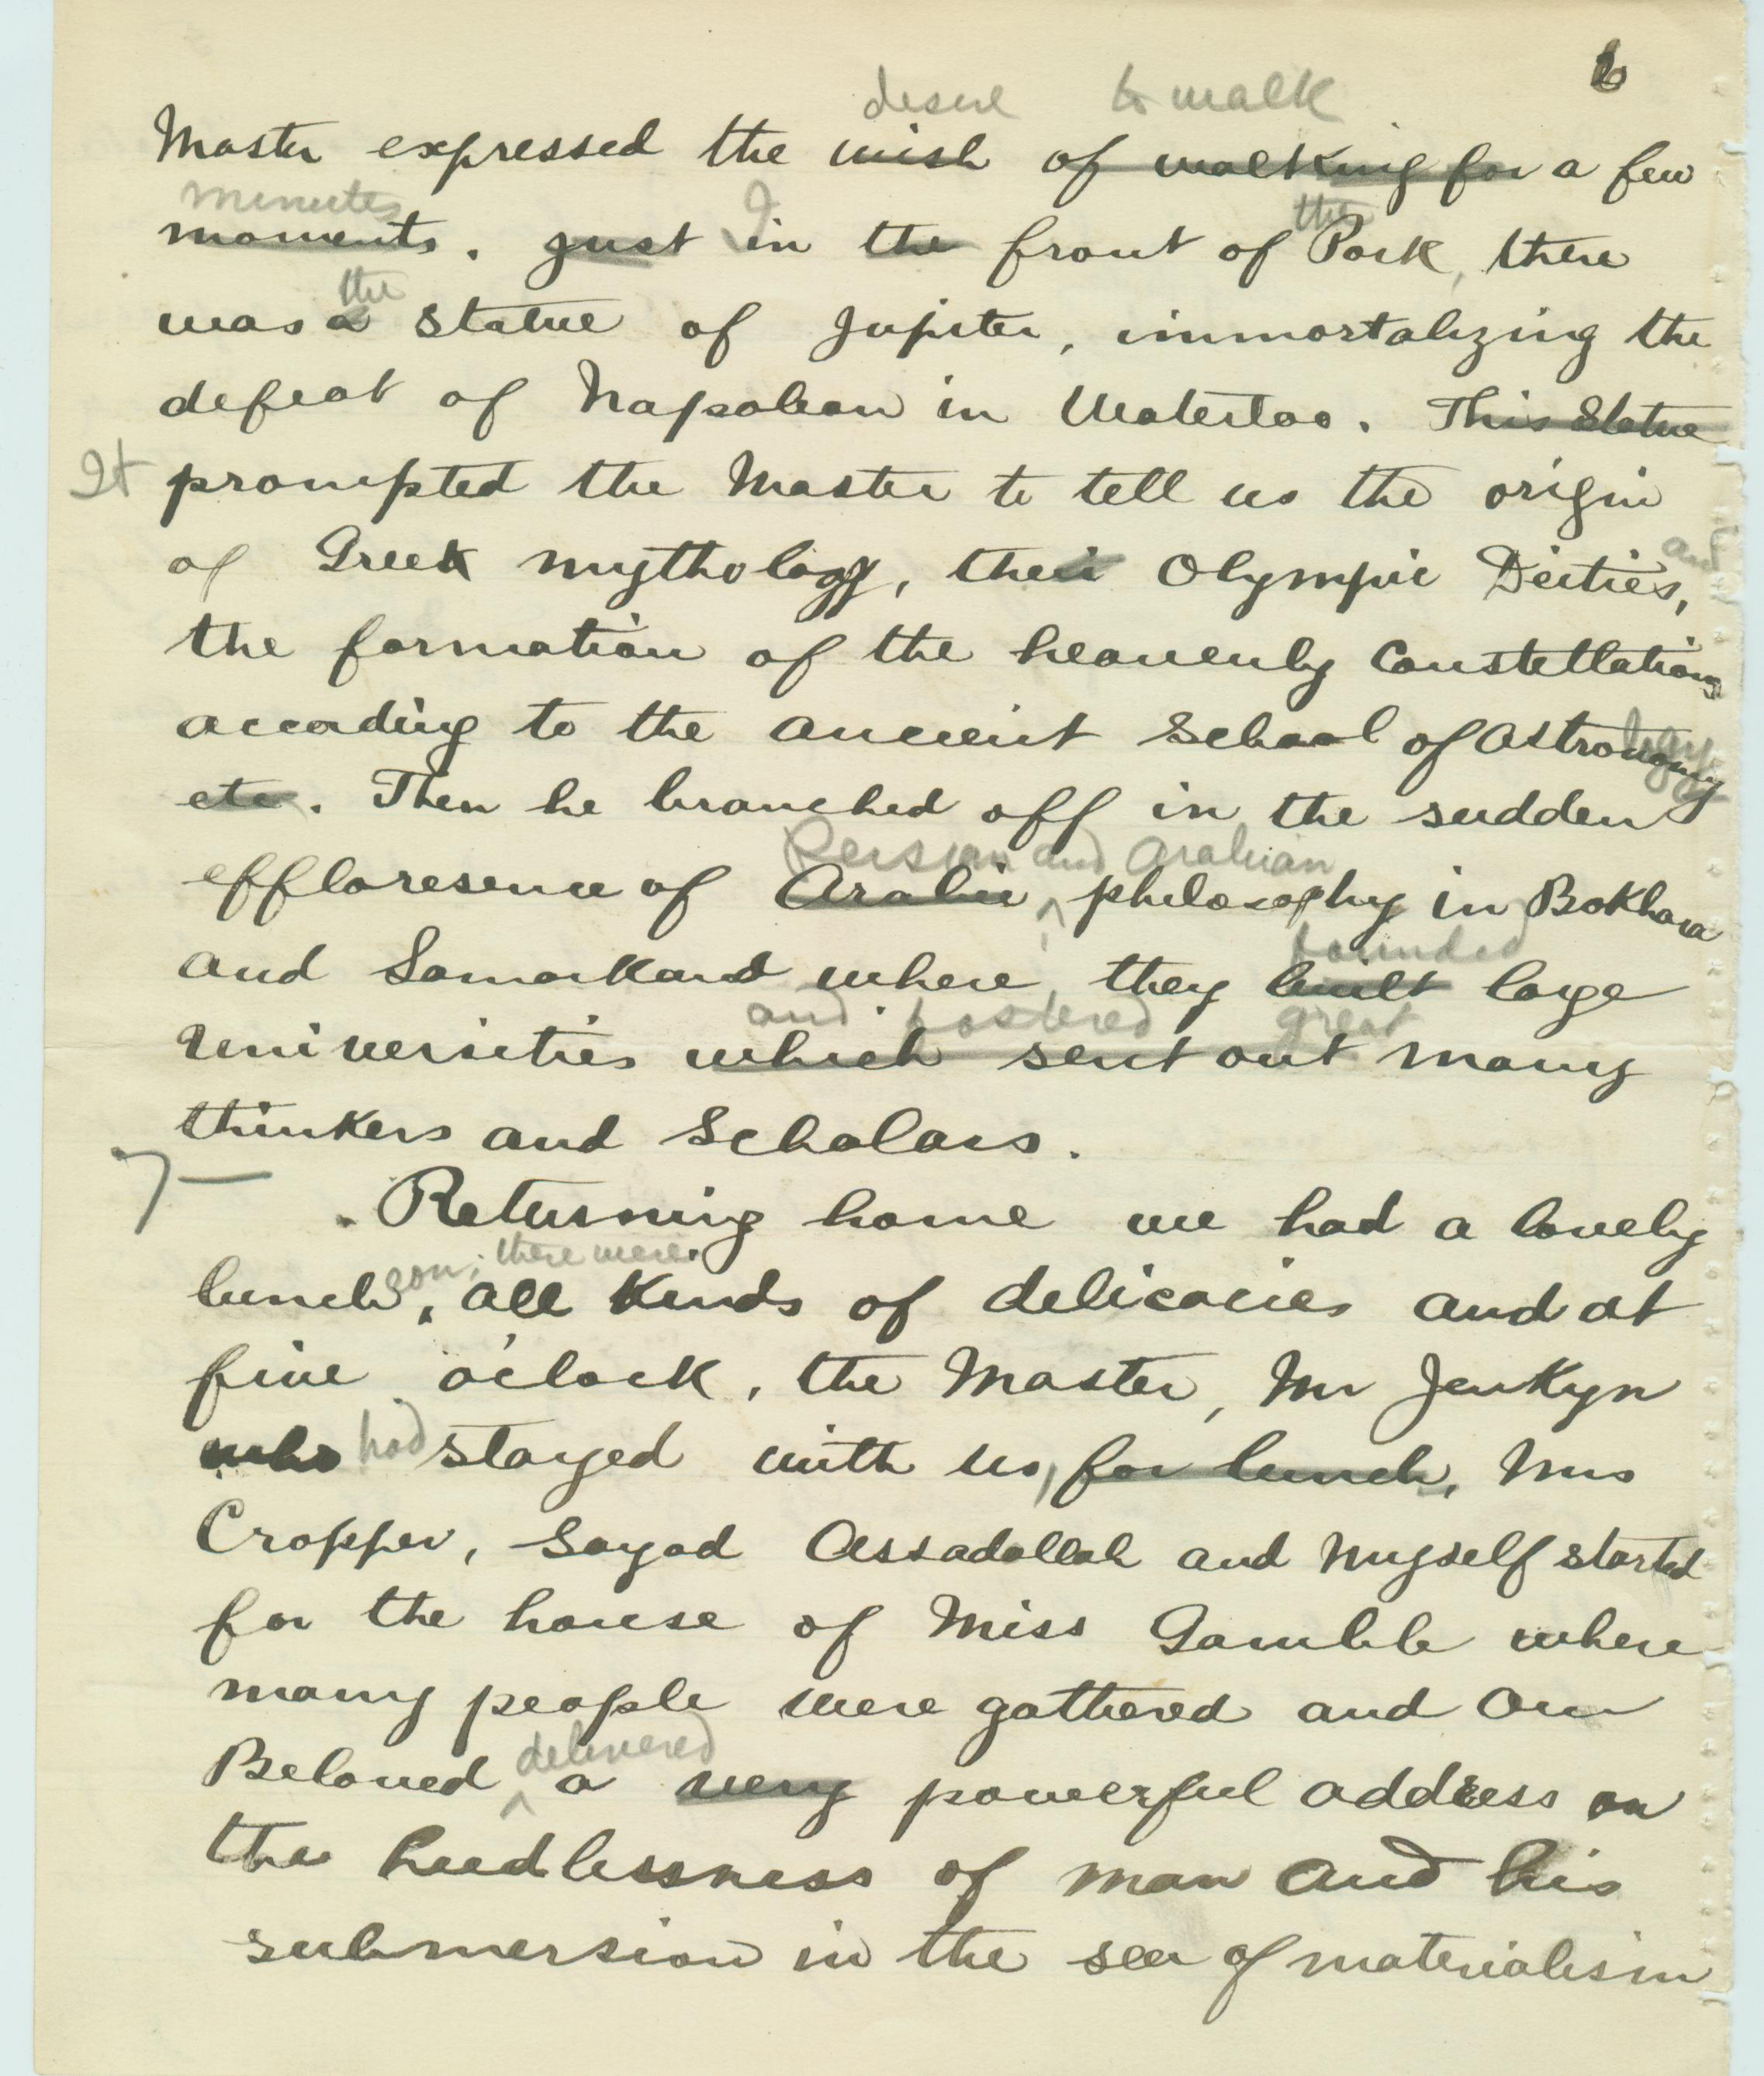 6
desire to walk
Master expressed the wish of walking for a few
minutes I the
moments. just in the front of Park, there
the
was a statue of Jupiter, immortalizing the
defeat of Napolean in Waterloo. This Statue
It prompted the Master to tell us the origin
and
of Greek mythology, their Olympic Deities,
the formation of the heavenly Constellations
logy
accoding to the ancient School of Astronomy
etc. Then he branched off in the sudden
Persian and Arabian
effloresence of Arabic philosophy in Bokhara
founded
and Samarkand where they built large
and fostered great
Universities which sent out many
thinkers and Scholars.
Returning home we had a lovely
eon; there were
lunch, all kinds of delicacies and at
five o'clock, the Master, Mr Jenkyn
had
who stayed with us, for lunch, Mrs
Cropper, Sayad Assadollah and Myself started
for the house of Miss Gamble where
many people were gathered and Our
delivered
Beloved a very powerful address on
the heedlessness of man and his
submersion in the sea of materialism